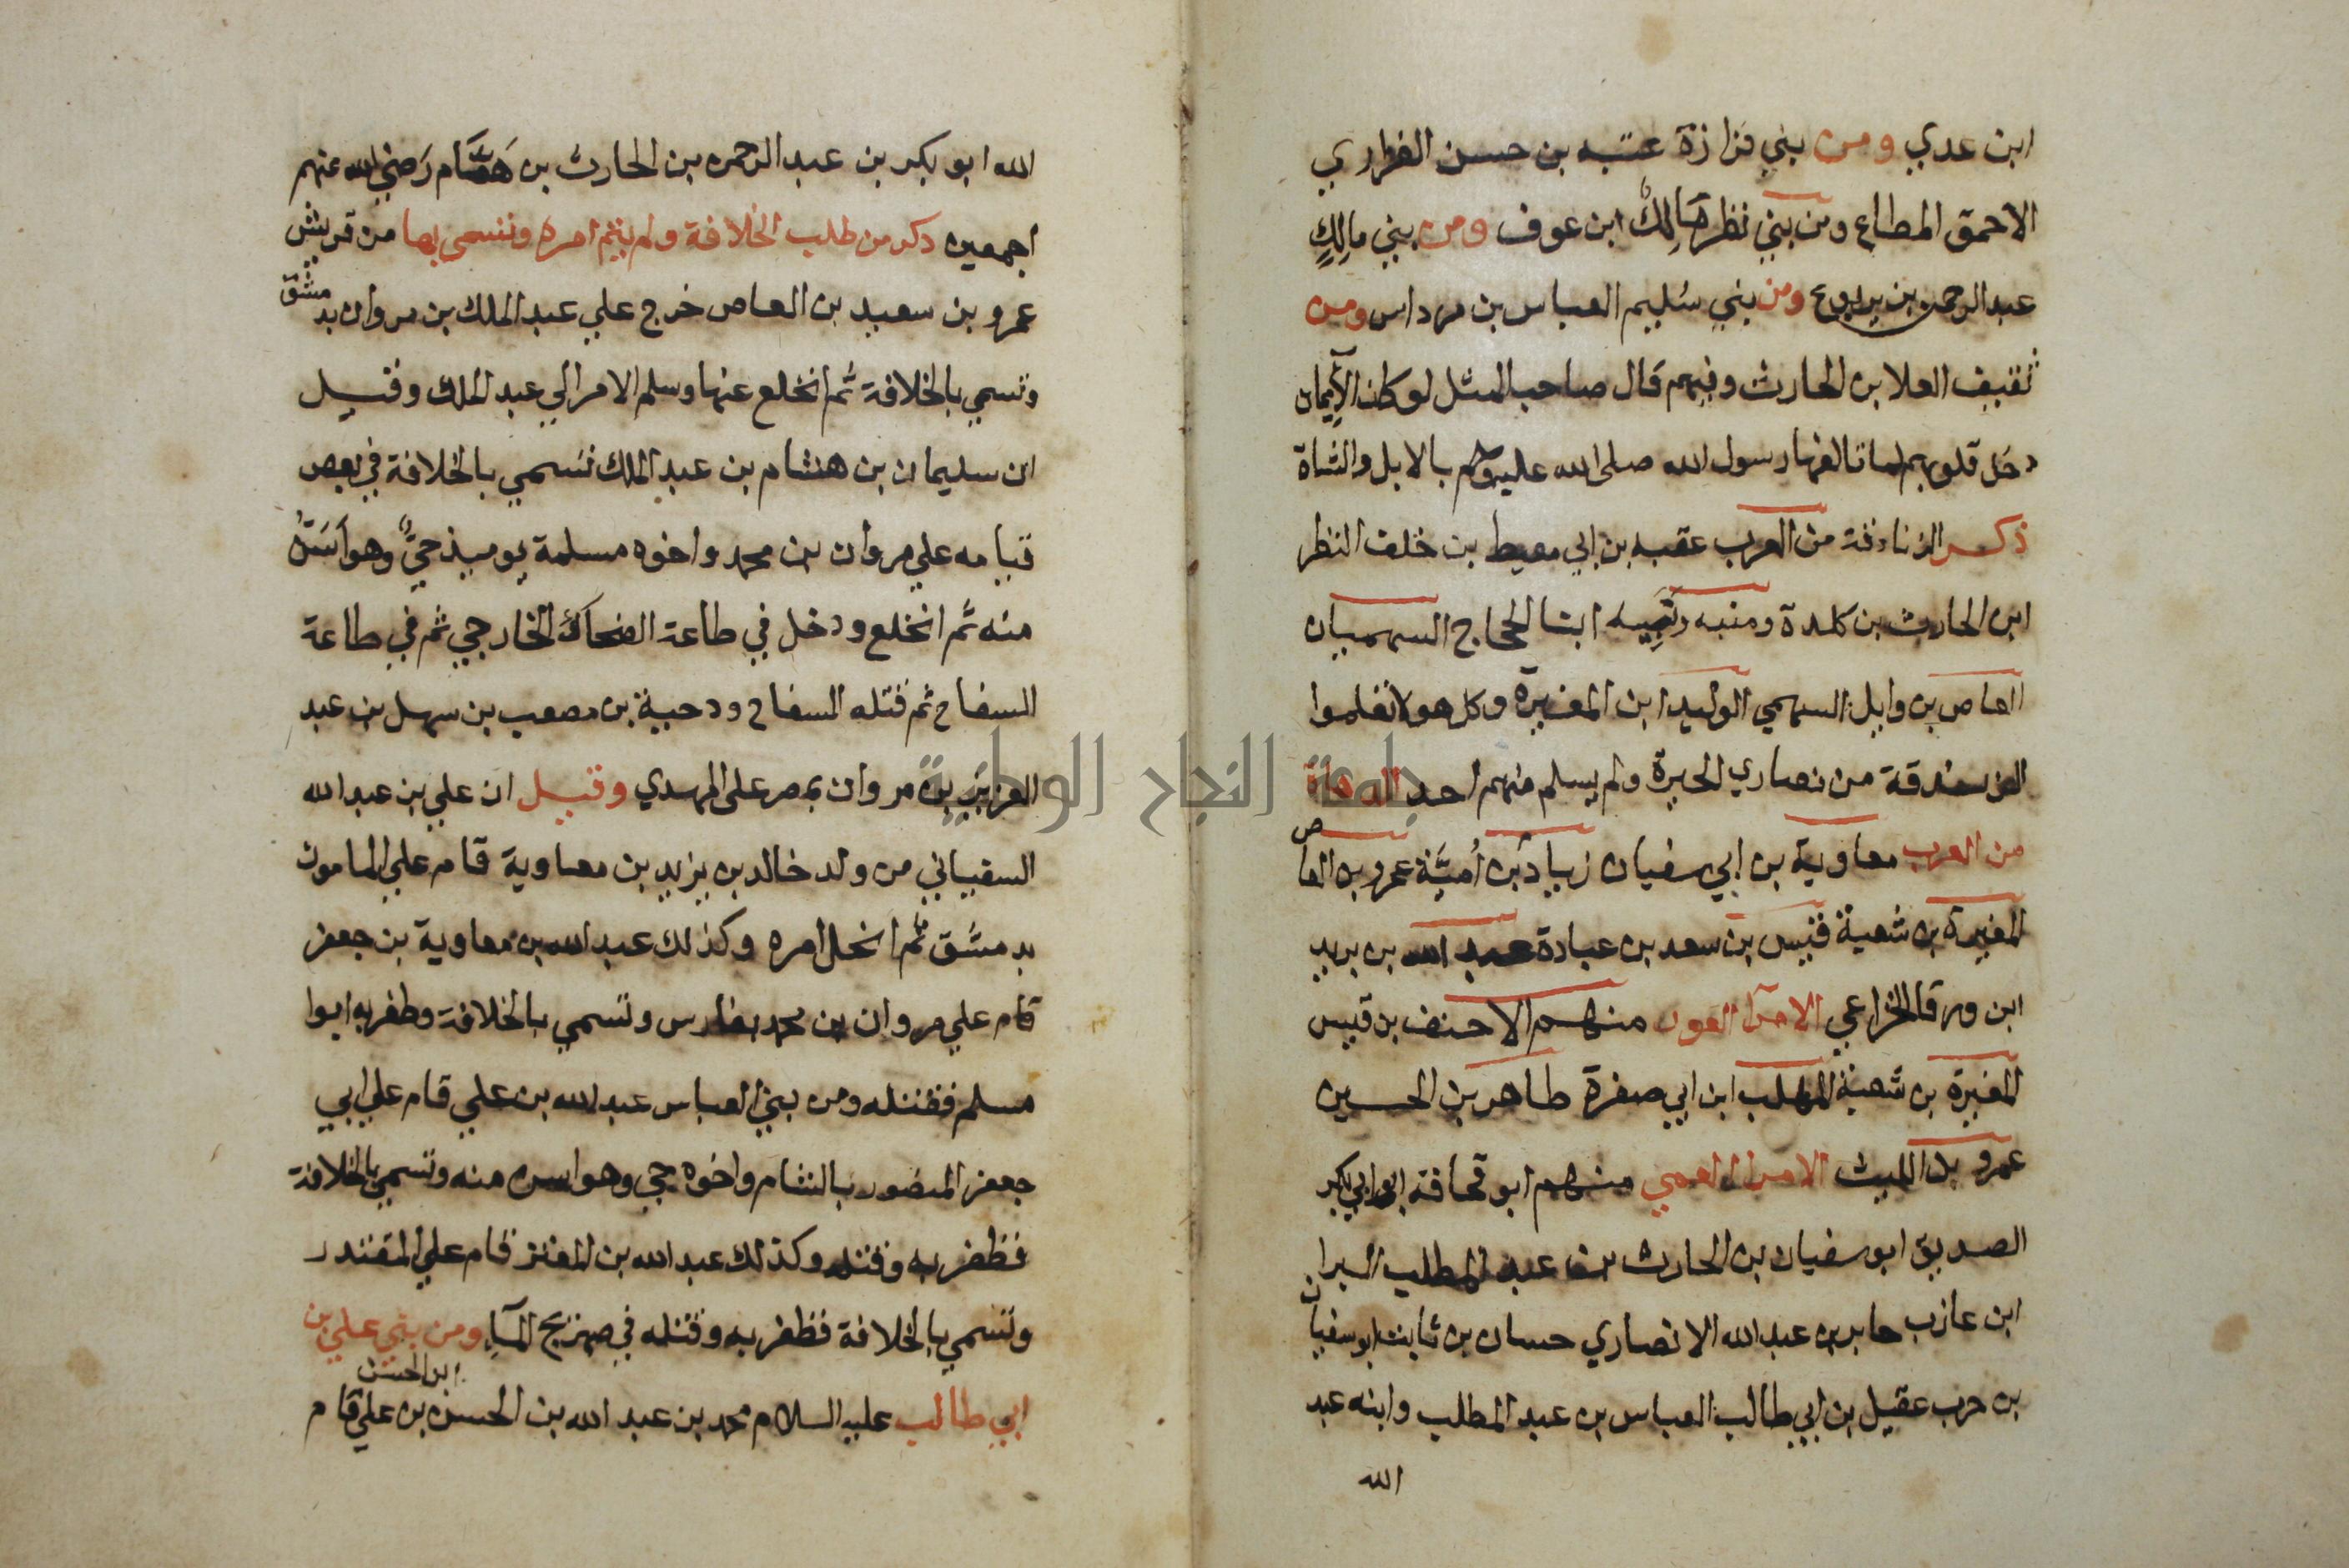 ابن عدي ومن بني فزازة عتبه بن حسن الفزاري
الاحمق المطاع ومن بني نظر مَالِكْ ابن عوف ومن بني مالِكٍ
عبد الرحمن بن يربوع ومن بني سُليم العباس بن مرداس ومن
ثقيف العلا بن الحارث وفيهم قال صاحب المثل لو كان الآيمان
دخل قلوبهم رسول الله صلى الله عليه وسلم بالابل والشاة
ذكر الزنادقة من العرب عقبه بن ابي معيط بن خلف النظر
ابن الحارث بن كلدة ومنبه ونبيه ابنا الحجاج السهميان
العاص بن وايل السهمي الوليد ابن المغيرة وكل هولا تعلموا
الزندقة من نصاري الحيرة ولم يسلم منهم احد الدهاة
من العرب معاوية بن ابي سفيان زياد بن أميَّة عمرو بن العاص
المغيرة بن شعبة قيس بن سعد بن عبادة عبد الله بن بريد
ابن ورقا الخزاعي العور منهم الاحنف بن قيس
المغيرة بن شعبة المهلب ابن ابي صفرة طاهر بن الحسين
عمرو بن الليث منهم ابو قحافة ابو ابي بكر
الصديق ابو سفيان بن الحارث بن عبد المطلب البرا
ابن عازب جابر بن عبد الله الانصاري حسان بن ثابت ابو سفيان
بن حرب عقيل بن ابي طالب العباس بن عبد المطلب وابنه عبد
الله
الله ابو بكر بن عبد الرحمن بن الحارث بن هشام رضي الله عنهم
اجمعين ذكر من طلب الخلافة ولم يتم امره وتسمى بها من قريش
عمرو بن سعيد بن العاص خرج علي عبد الملك بن مروان بدمشق
وتسمي بالخلافة ثم انخلع عنها وسلم الامر الي عبد الملك وقيل
ان سليمان بن هشام بن عبد الملك تسمي بالخلافة في بعض
قيامه علي مروان بن محمد واخوه مسلمة يوميذ حيٌّ وهو اَسَنُّ
منه ثم انخلع ودخل في طاعة الضحاك الخارجي ثم في طاعة
السفاح ثم قتله السفاح ودحية بن مصعب بن سهل بن عبد
العزيز بن مروان بمصر على المهدي وقيل ان علي بن عبد الله
السفياني من ولد خالد بن يزيد بن معاوية قام علي المامون
بدمشق ثم انحل امره وكذلك عبد الله بن معاوية بن جعفر
قام علي مروان بن محمد بفارس وتسمي بالخلافة وظفر به ابوا
مسلم فقتله ومن بني العباس عبد الله بن علي قام علي ابي
جعفر المنصور بالشام واخوه حي وهو اسن منه وتسمي بالخلافة
فظفر به وقتله وكذلك عبد الله بن المعتز قام علي المقتدر
وتسمي بالخلافة فظفر به وقتله في صهريج المآء ومن بني علي بن
ابي طالب عليه السلام محمد بن عبد الله بن الحسن بن الحسن بن علي قام
جامعة النجاح الوطنية